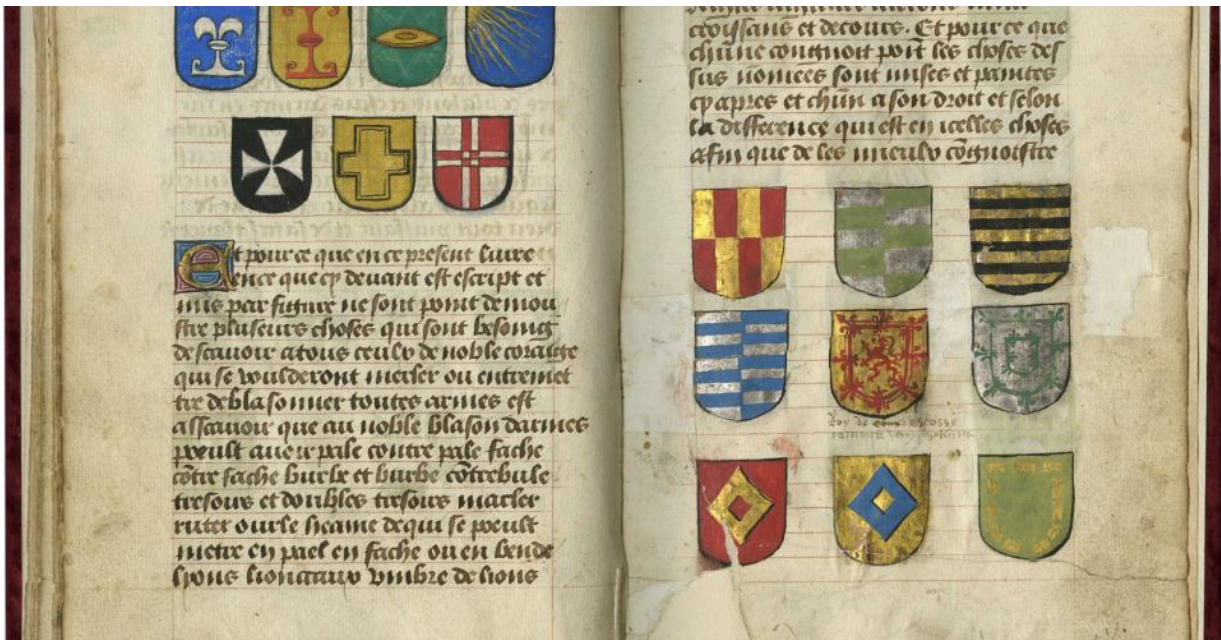 Et pour ce que en ce present livre
ence que cy devant est escript et
mis par figure ne sont point demou
stre pluseurs choses qui sont besoing
de scavoir a tous ceulx de noble coraige
qui se voulderont mesler ou entremet
tre de blasonner toutes armes est
assavoir que au noble blason darmes
poeult avoir pale contre pale fache
cōtre fache burle et burbe cōtrebule
tresours et doubles tresours macler
ruter ourle de qui se poeult
metre en pael en fache ou en bende
lyons lionceaux umbre de lions
croissans et decours. Et pour ce que
chūne congnoit poit les choses des
sus nomees sont mises et paintes
cy apres et chūn a son droit et selon
la difference qui est en icelles choses
afin que de les mieulx cōgnoistre
roy de escosse